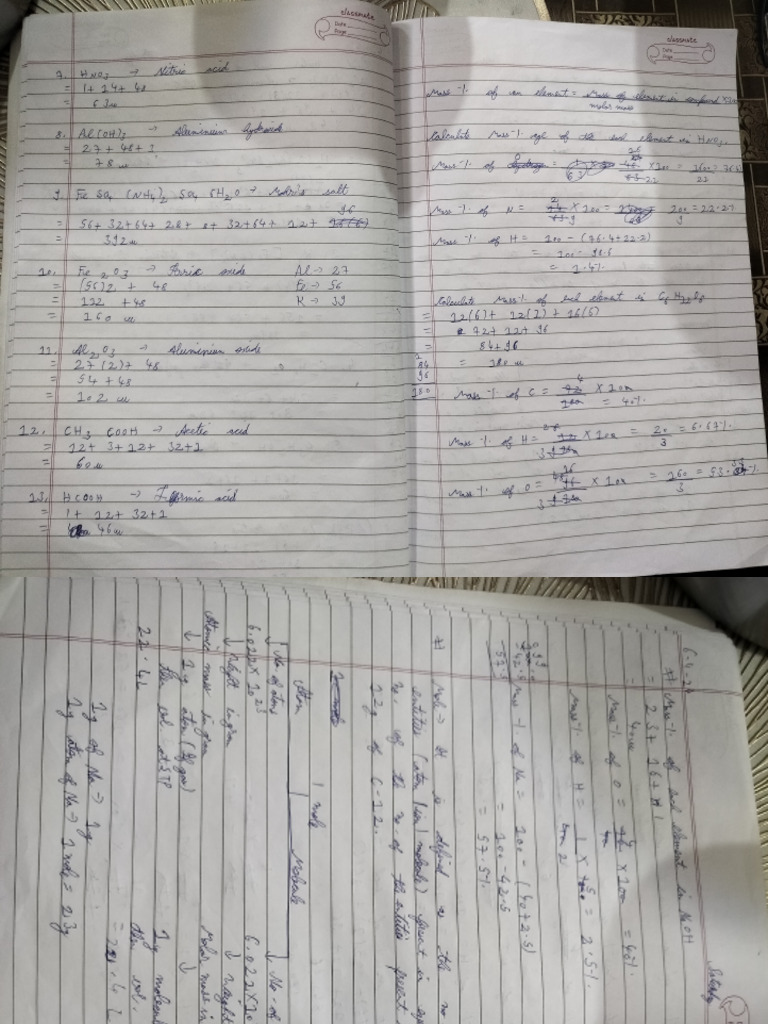 classmate
Date
Page
7. HNO3 → Nitric acid
= 1+14+48
= 63u
8. Al(OH)3 → Aluminium hydroxide
= 27+48+3
= 78u
9. Fe SO4 (NH4)2 SO4 6H2O → Mohr's salt
96
= 56+32+64+28+8+32+64+12+
= 392u
10. Fe2O3 → Ferric oxide Al → 27
= (56)2 + 48 Fe → 56
= 112 +48 K → 39
= 160 u
11. Al2O3 → Aluminium oxide
= 27(2)+ 48
= 54+48
= 102 u
12. CH3 COOH → Acetic acid
= 12+3+12+ 32+1
= 60u
13. HCOOH → Formic acid
= 1+ 12+ 32+1
= 46u
classmate
Date
Page
Mass % of an element = Mass of element in compound
molar mass
Calculate Mass % age of the each element in HNO3
Mass % of O = 48 x100 = 1600 = 76.
63 21 21
Mass % of N = 14 x 100 = 200 = 22.2%
63 9 9
Mass % of H = 100 - (76.4+22.2)
= 100 - 98.6
= 1.4%
Calculate Mass % of each element in
= 12(6)+ 12(1) + 16(6)
= 72+12+96
= 84+96
= 180u
84
96
180
Mass % of C = 72 x 100
180 = 40%
Mass % of H = 12 x 100 = 20 = 6.67%
3 180 3
Mass % of O = 96 x 100 = 160 = 53.
3 180 3
Mass % of each element in NaOH
= 23+ 16+ 1
= 40u
Mass % of O = 16 x 100 = 40%
40
Mass % of H = 1 x 100 = 2.5%
40 2
Mass % of Na = 100 - (40+2.5)
= 100 - 42.5
= 57.5%
Mole → It is defined as the no
entities (atom/ion/molecule) present in
no. of the no. of the entities present
12g of C-12.
1 mole
Atom Molecule
↓ No of atoms ↓ No. of
6.022 x 10 23 6.022 x 10
↓ Weight in gram ↓ weight
Atomic mass in gram Molar mass in
↓ 1g atom (If gas) ↓
then vol. at STP 1g molecule
22.4L then vol.
1g of Na → 1g
1g atom of Na → 1 mole = 23g